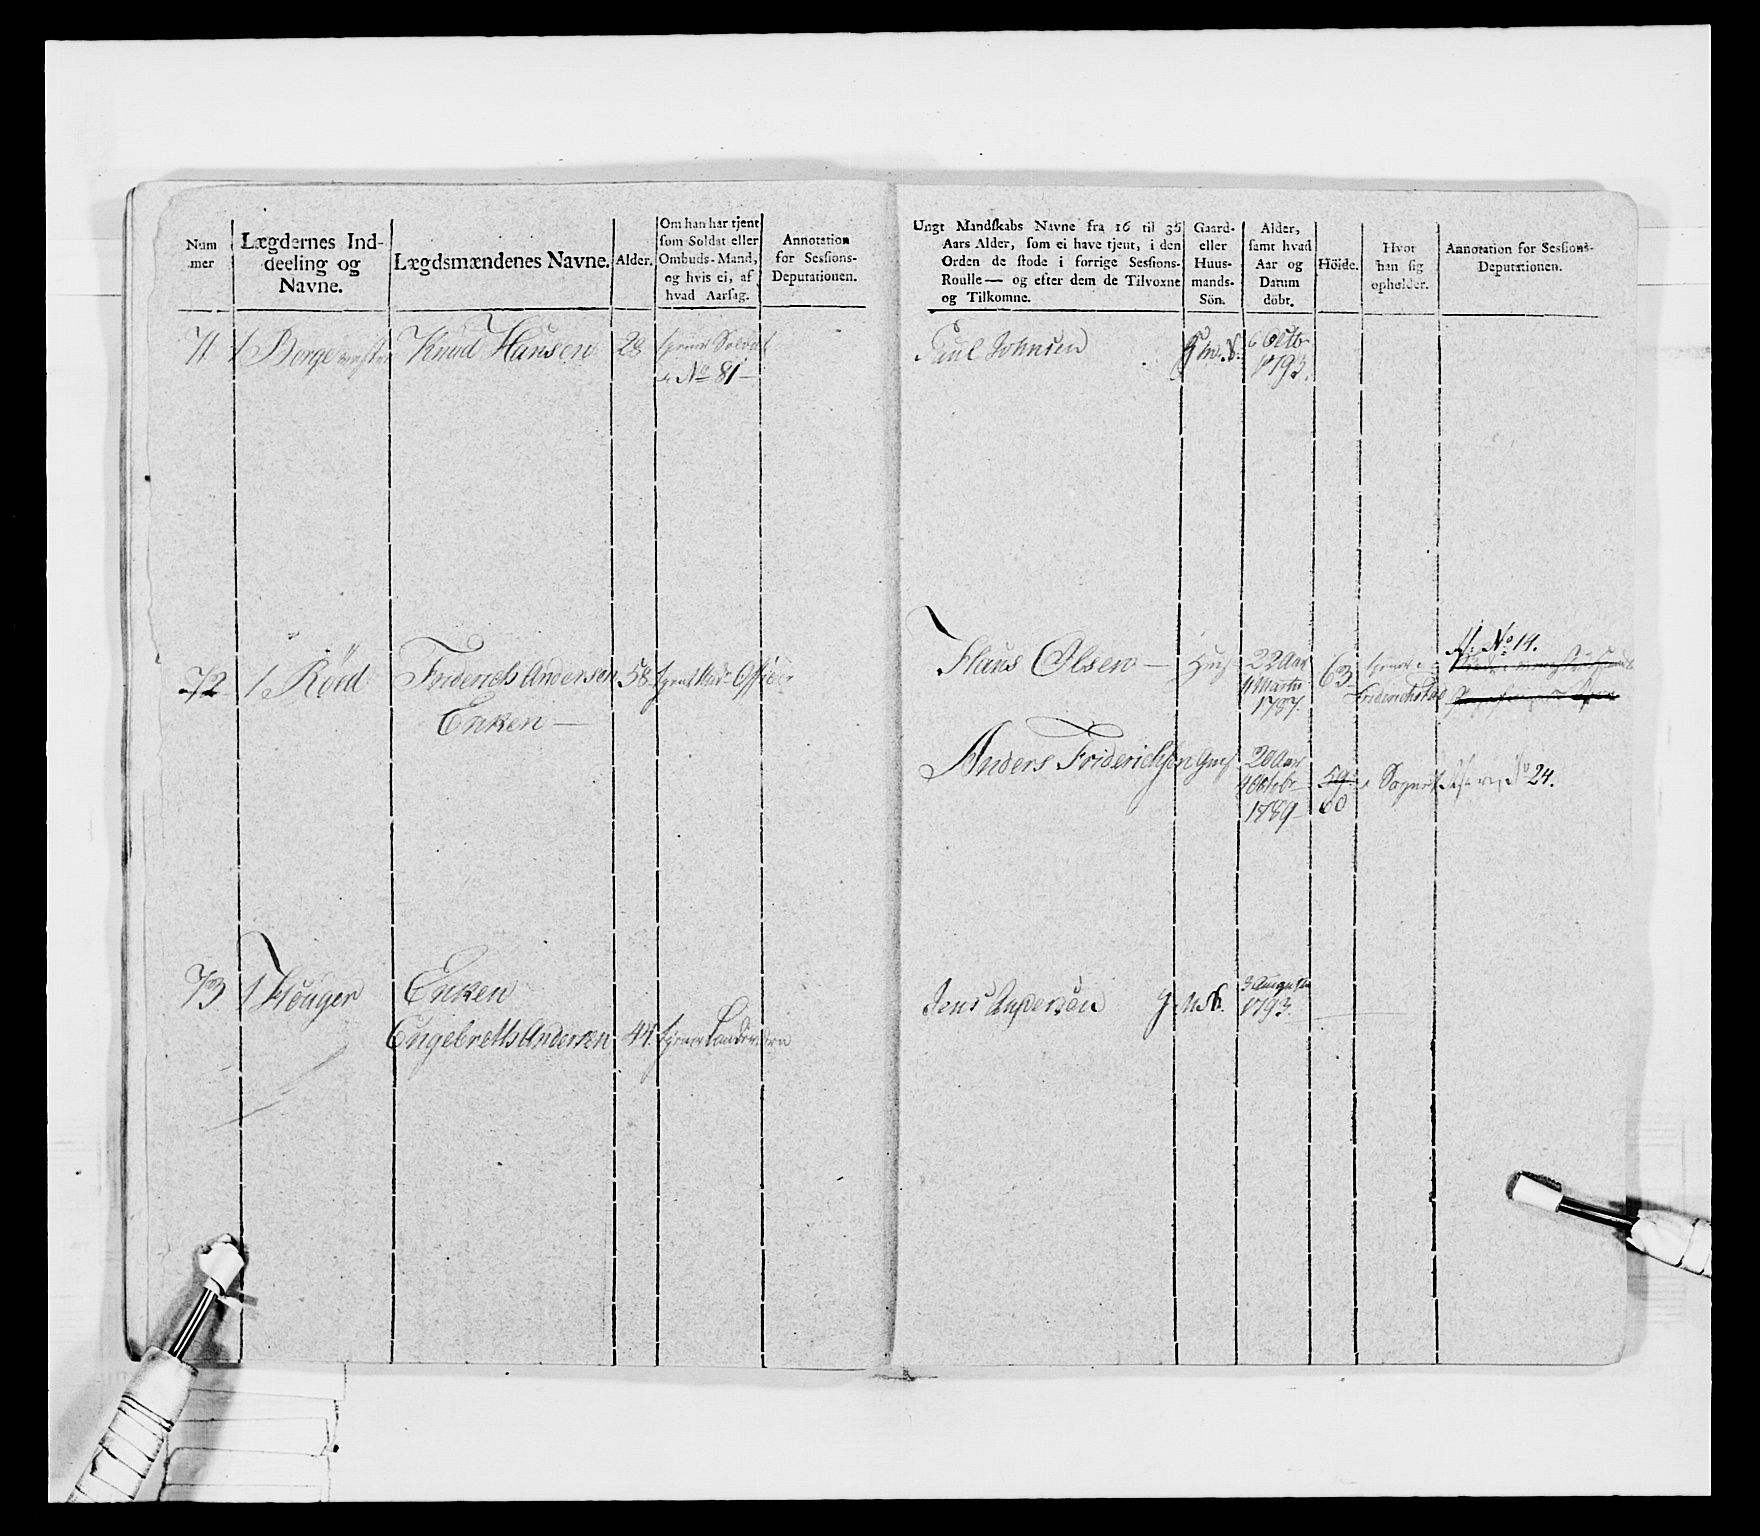 Num
mer
Lægdernes Ind-
deeling og
Navne.
Lægdsmændenes Navne.
Alder.
Om han har tjent
som Soldat eller
Ombuds-Mand,
og hvis ei, af
hvad Aarsag.
Annotation
for Sessions-
Deputationen.
Ungt Mandskabs Navne fra 16 til 36
Aars Alder, som ei have tjent, i den
Orden de stode i forrige Sessions-
Roulle — og efter dem de Tilvoxne
og Tilkomne.
Gaard-
eller
Huus-
mands-
Sön.
Alder,
samt hvad
Aar og
Datum
döbt.
Höide.
Hvor
han sig
opholder.
Annotation for Sessions-
Deputationen.
71 1 Borge Knud Hansen 28
No 81
Paul Johnsen 6 Octbr
1793.
72 1 Röed Friderich Andersen 58
Enken
Claus Olsen 22 Aar 63
11 Martii
1787.
Friderichstad
No 14.
Anders Friderichsen 20 Aar
Octobr
1789
59
60
Sognet No 24.
73 1 Houger Enken
Engebreth Andersen 44
Jens Andersen 3 August
1793.